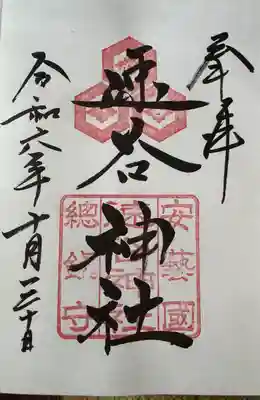 奉拝
速谷神社
令和六年十月三十日
安藝國
總鎮守